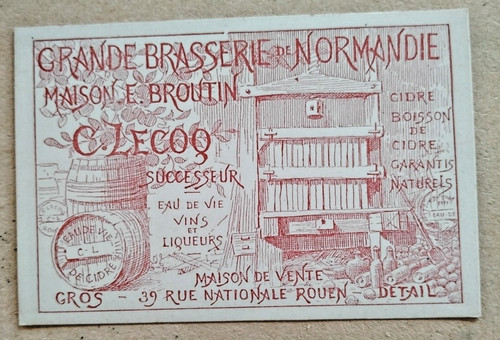 GRANDE BRASSERIE DE NORMANDIE
MAISON E. BROUTIN
C. LECOQ
SUCCESSEUR
EAU DE VIE
VINS
ET
LIQUEURS
CIDRE
BOISSON
DE
CIDRE
GARANTIS
NATURELS
EAU DE VIE
C. L.
DE CIDRE
MAISON DE VENTE
GROS - 39 RUE NATIONALE ROUEN - DETAIL